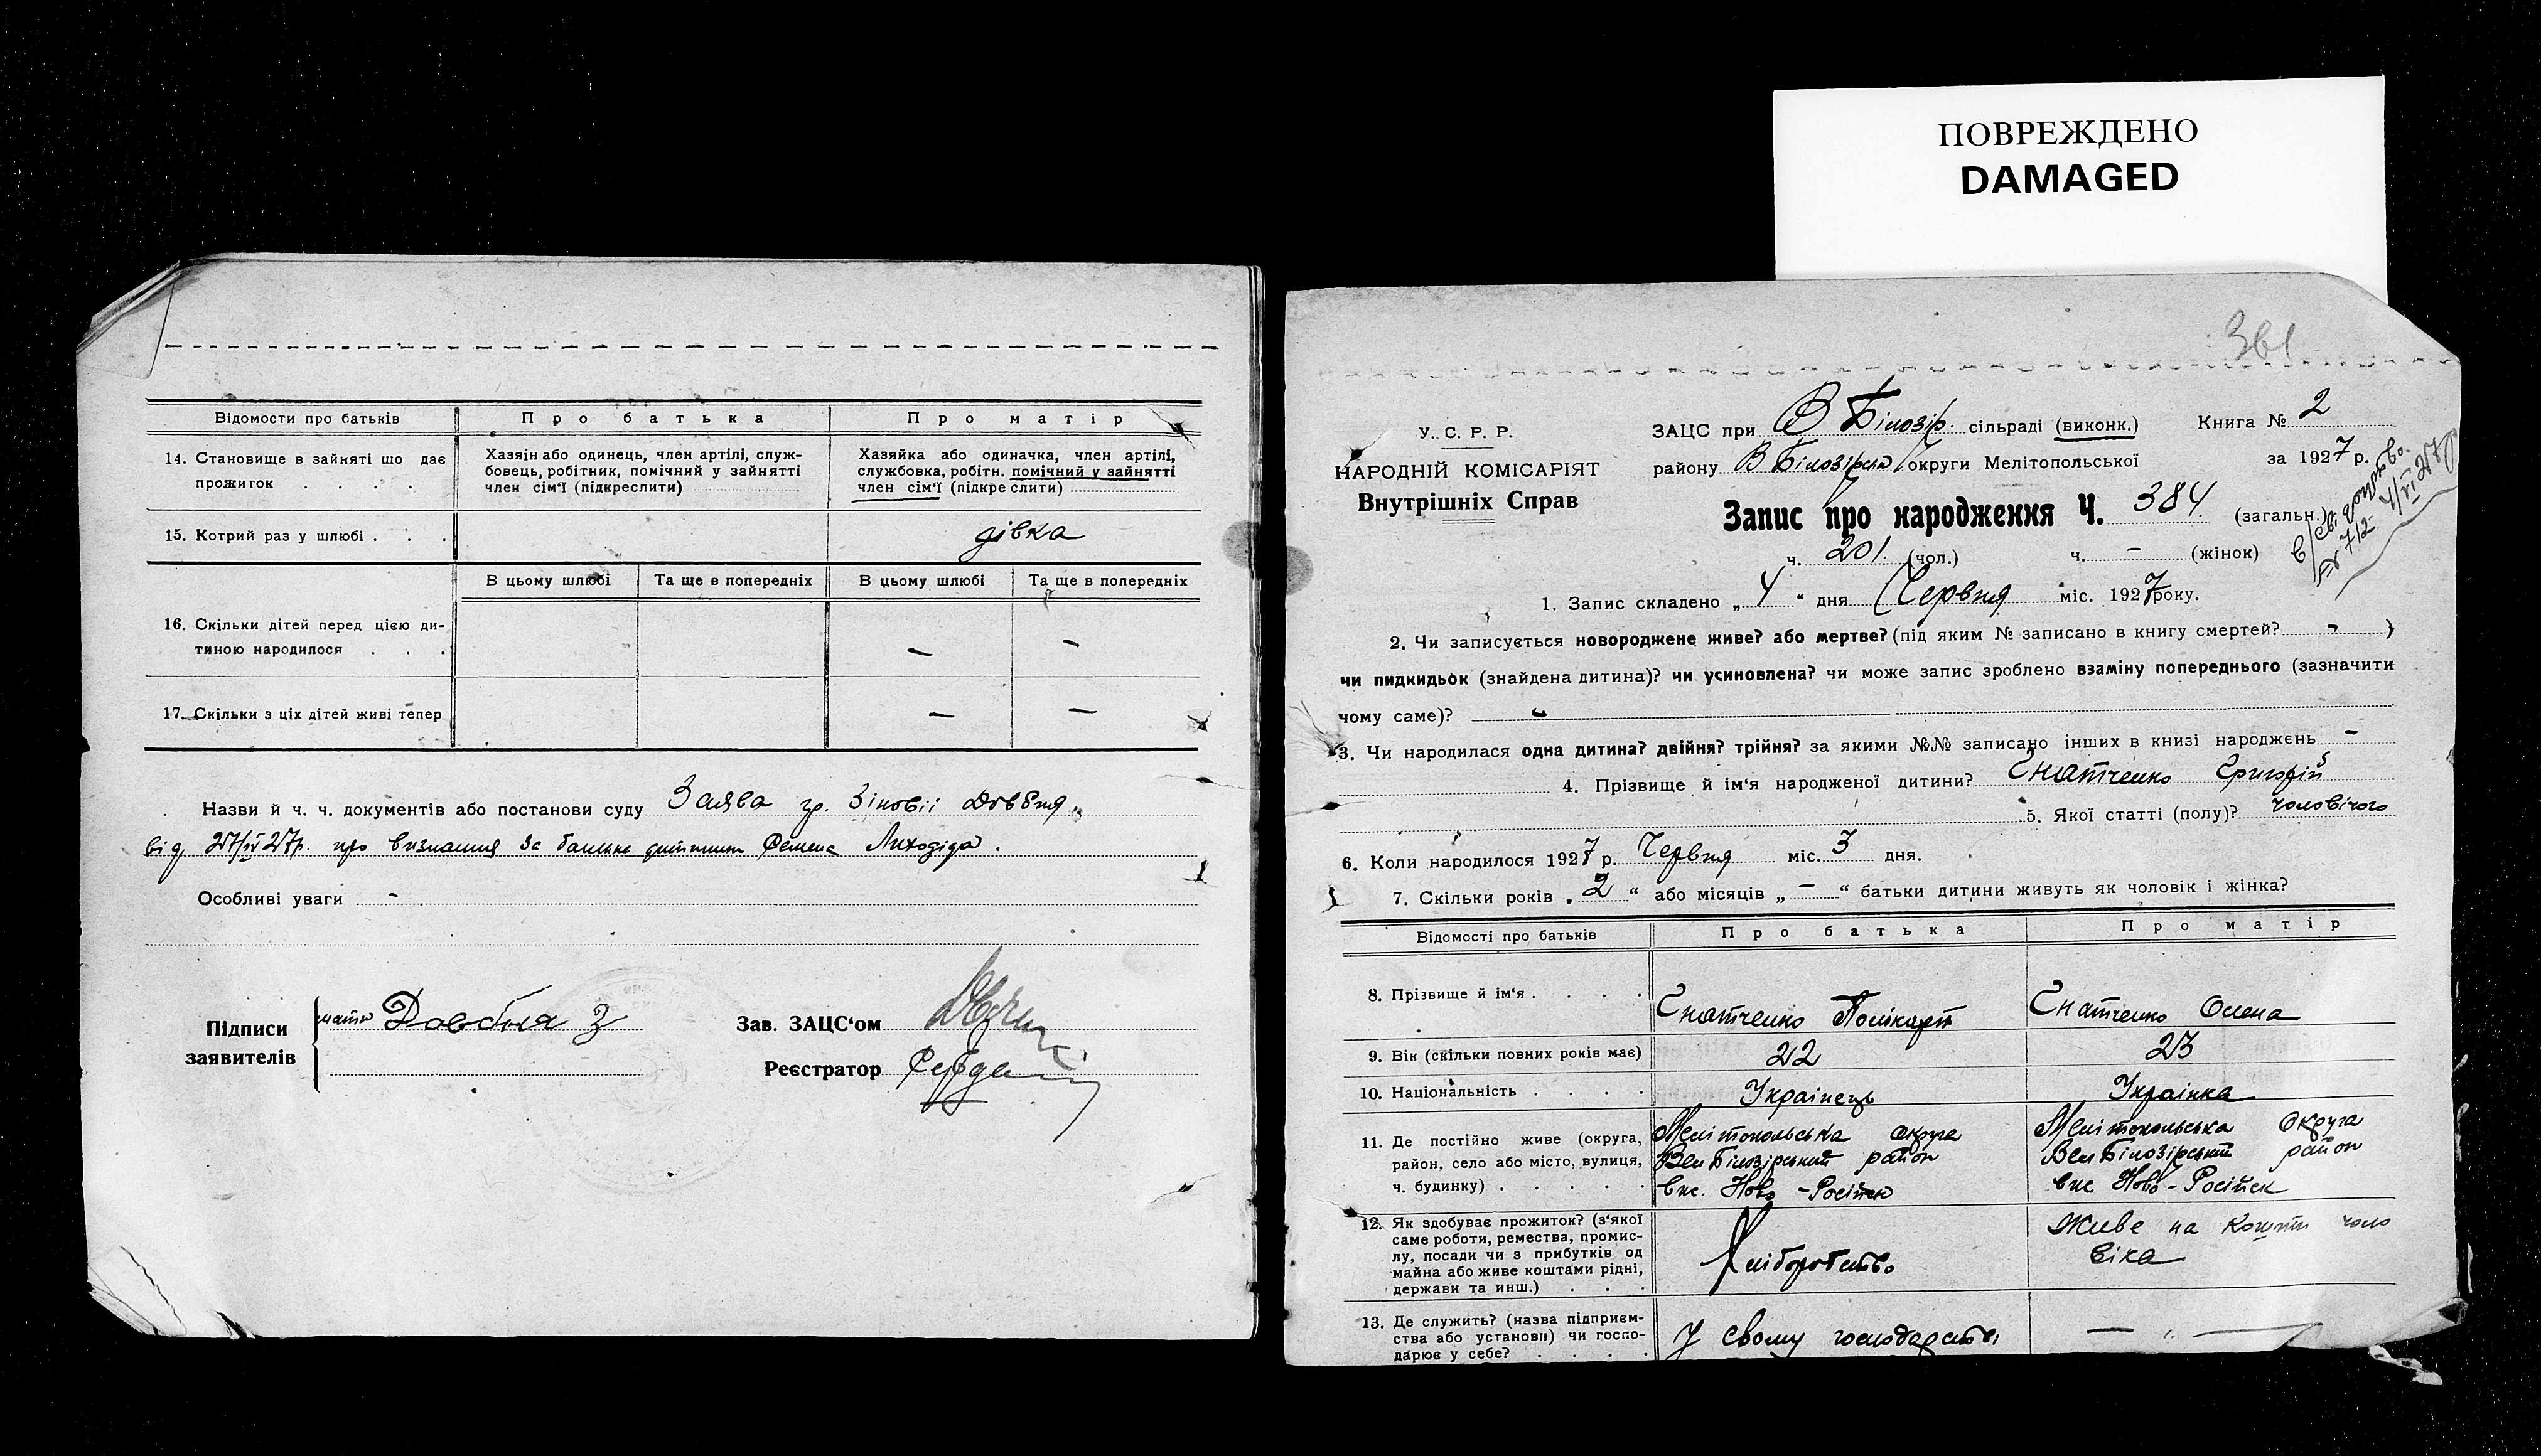 ПОВРЕЖДЕНО
DAMAGED
Відомости про батьків
Про батька
Про матір
14. Становище в зайняті що дає прожиток . . . .
Хазяін або одинець, член артілі, служ-
бовець, робітник, помічний у зайнятті
член сім'ї (підкреслити)
Хазяйка або одиначка, член артілі,
службовка, робітн. помічний у зайнятті
член сім'ї (підкреслити)
15. Котрий раз у шлюбі . . .
дівка
В цьому шлюбі
Та ще в попередніх
В цьому шлюбі
Та ще в попередніх
16. Скільки дітей перед цією ди-
тиною народилося . . .
– –
17. Скільки з ціх дітей живі тепер
– –
Назви й ч. ч. документів або постанови суду Заява гр. Зіновії Довбня
від 27/IV 27р. про визнання за батька дитини Семена Лиходіда.
Особливі уваги –
Підписи
заявителів
мати Довбня З
Зав. ЗАЦС'ом
Реєстратор
361
У. С. Р. Р.
НАРОДНІЙ КОМІСАРІЯТ
Внутрішніх Справ
ЗАЦС при В Білозір. сільраді (виконк.) Книга № 2
району В Білозірка округи Мелітопольської за 1927 р.
Запис про народження Ч. 384 (загальн.)
ч. 201. (чол.) ч. – (жінок)
№ 712 4/VI 27р
1. Запис складено „ 4 " дня Червня міс. 1927 року.
2. Чи записується новороджене живе? або мертве? (під яким № записано в книгу смертей? – )
чи пидкидьок (знайдена дитина)? чи усиновлена? чи може запис зроблено взаміну попереднього (зазначити
чому саме)? –
3. Чи народилася одна дитина? двійня? трійня? за якими №№ записано інших в книзі народжень –
4. Прізвище й ім'я народженої дитини? Гнатченко Григорій
5. Якої статті (полу)? чоловічого
6. Коли народилось 1927 р. Червня міс. 3 дня.
7. Скільки років „ 2 " або місяців „ – " батьки дитини живуть як чоловік і жінка?
Відомості про батьків
Про батька
Про матір
8. Прізвище й ім'я . . . .
Гнатченко Полікарп
Гнатченко Олена
9. Вік (скільки повних років має)
22
23
10. Національність . . . .
Українець
Українка
11. Де постійно живе (округа,
район, село або місто, вулиця,
ч. будинку) . . . . .
Мелітопольська округа
Вел Білозірський район
вис. Ново-Російск
Мелітопольська округа
Вел Білозірський район
вис Ново-Російск
12. Як здобуває прожиток? (з'якої
саме роботи, ремества, промис-
лу, посади чи з прибутків од
майна або живе коштами рідні,
держави та инш.) . . .
Хліборобство
Живе на кошти чоло
віка
13. Де служить? (назва підприєм-
ства або установи) чи госпо-
дарює у себе? . . . .
У свому господарстві
— „ —